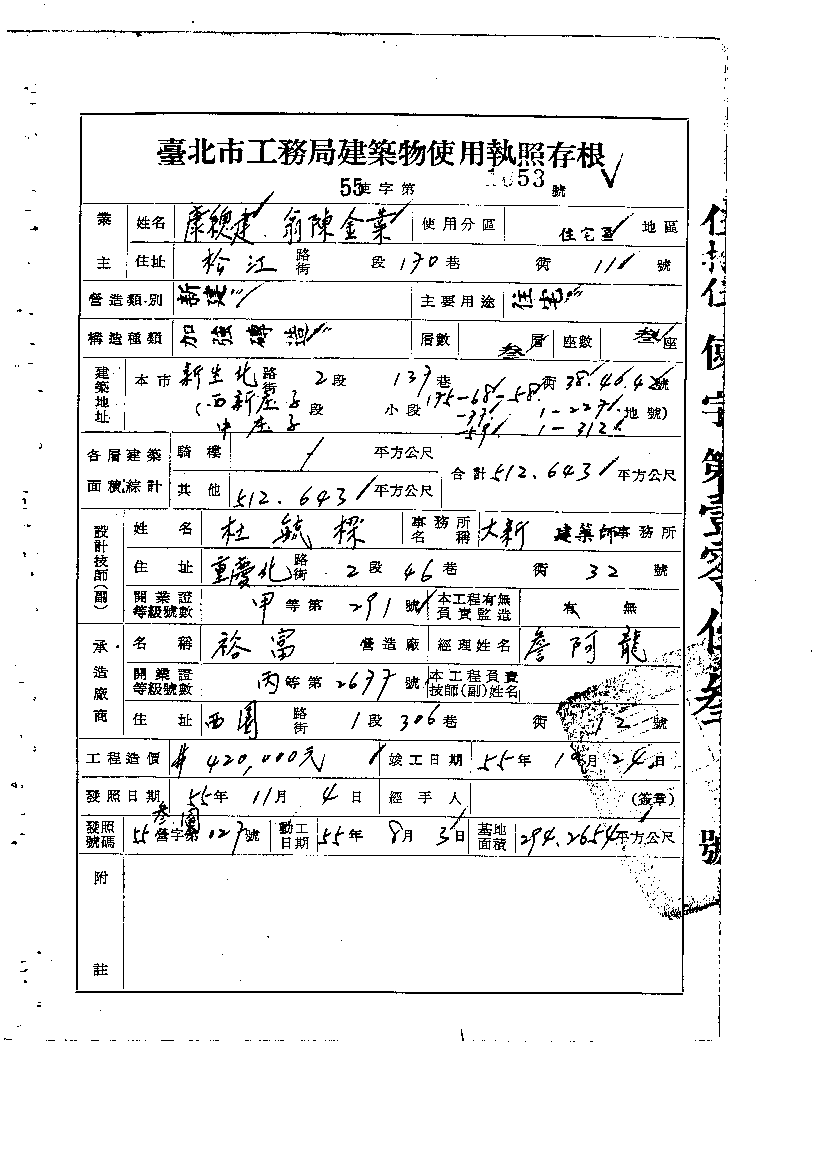 臺北市工務局建築物使用執照存根
55使字第 1053 號
業主 姓名 康總建 翁陳金葉 使用分區 住宅區 地區
住址 松江 路街 段 170 巷 衖 11 號
營造類別 新建 主要用途 住宅
構造種類 加強磚造 層數 叁 層 座數 叁 座
建築地址 本市 新生北 路街 2 段 137 巷 衖 38.40.42 號
(西新庄子 段 小段 175-68-58. 1-227 地號)
中庄子 1-312
各層建築面積綜計 騎樓 平方公尺 合計 512.643 平方公尺
其他 512.643 平方公尺
設計技師(副) 姓名 杜毓樑 事務所名稱 大新 建築師事務所
住址 重慶北 路街 2 段 46 巷 衖 32 號
開業證等級號數 甲 等第 291 號 本工程有無負責監造 有 無
承造廠商 名稱 裕富 營造廠 經理姓名 詹阿龍
開業證等級號數 丙 等第 2677 號 本工程負責技師(副)姓名
住址 西園 路街 1 段 306 巷 衖 12 號
工程造價 420,000元 竣工日期 55 年 10 月 24 日
發照日期 55 年 11 月 4 日 經手人 (簽章)
發照號碼 55 營字第 027 號 動工日期 55 年 8 月 3 日 基地面積 294.2654 平方公尺
附註
使字第壹零伍叁號